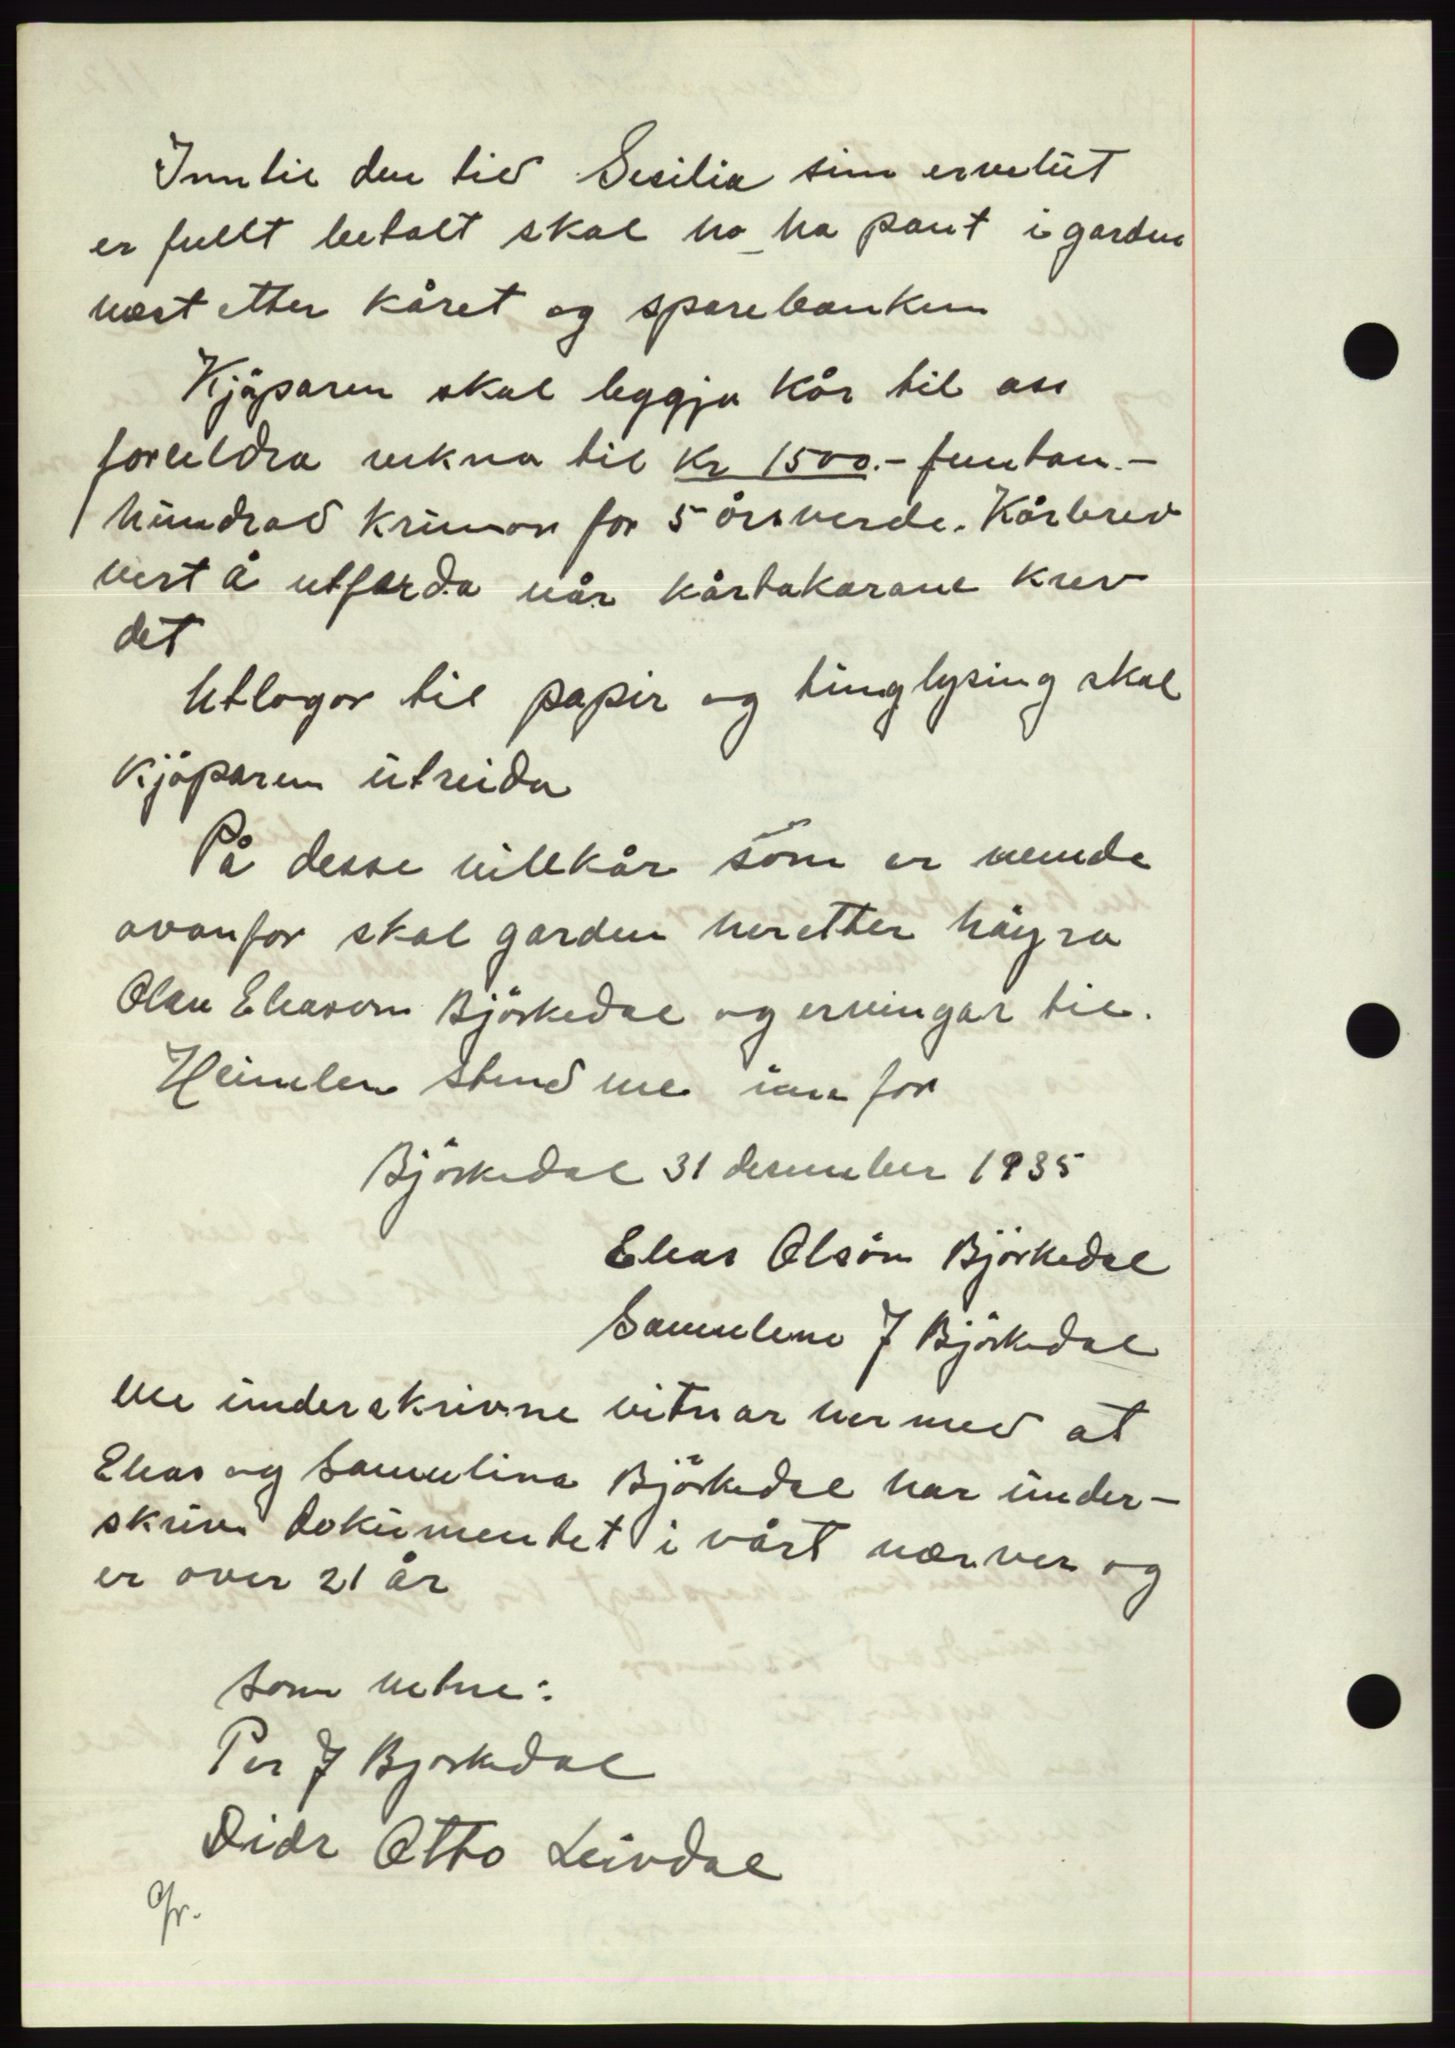 Inntil den tid Sesilia sin ervelut
er fullt betalt skal ho ha pant i garden
næst etter kåret og sparebanken
Kjöparen skal leggja kår til oss
foreldra rekna til kr 1500.- femtan.-
hundrad krunor for 5 årsverde. Kårbrev
vert å utferda når kårtakarane krev
det
Utlogor til papir og tinglysing skal
kjöparen utreida
På desse villkår som er nemde
ovanfor skal garden heretter höyra
Olav Eliasson Björkedal og ervingar til.
Heimlen stend me inne for
Björkedal 31 desember 1935
Elias Olsön Björkedal
Samulene J Björkedal
Me underskrivne vitnar hermed at
Elias og Samulina Björkedal har under-
skrive dokumentet i vårt nærver og
er over 21 år
Som vitne:
Per J Bjorkedal
Didr Otto Leivdal
Gr.